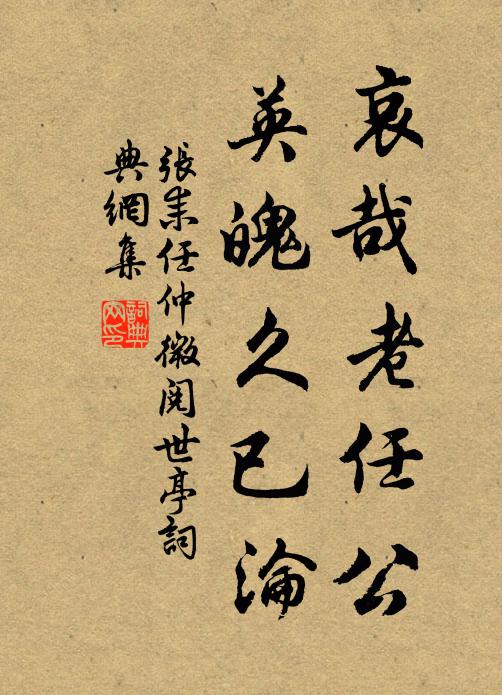 哀哉老任公
英魄久已淪
張耒任仲微閱世亭詞
典網集
詞典網印